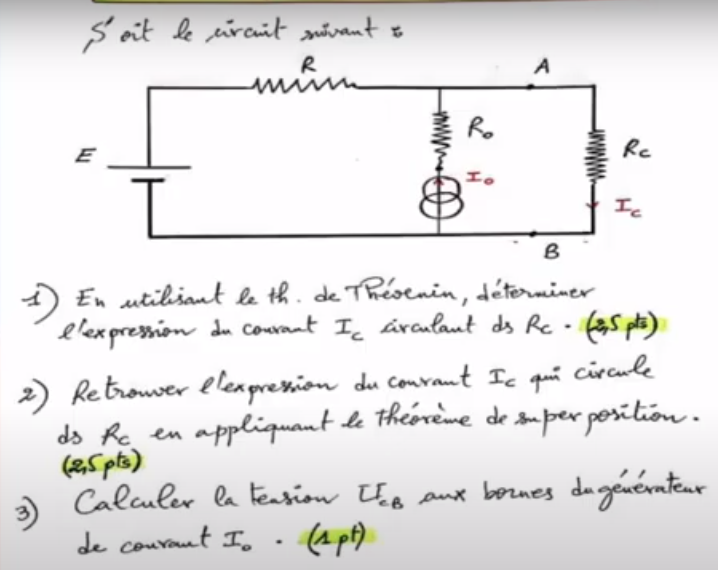 Soit le circuit suivant :
R
A
E
Ro
Rc
Io
Ic
B
1) En utilisant le th. de Thévenin, déterminer
l'expression du courant Ic circulant ds Rc. (2,5 pts)
2) Retrouver l'expression du courant Ic qui circule
ds Rc en appliquant le théorème de superposition.
(2,5 pts)
3) Calculer la tension UCB aux bornes du générateur
de courant Io. (1 pt)